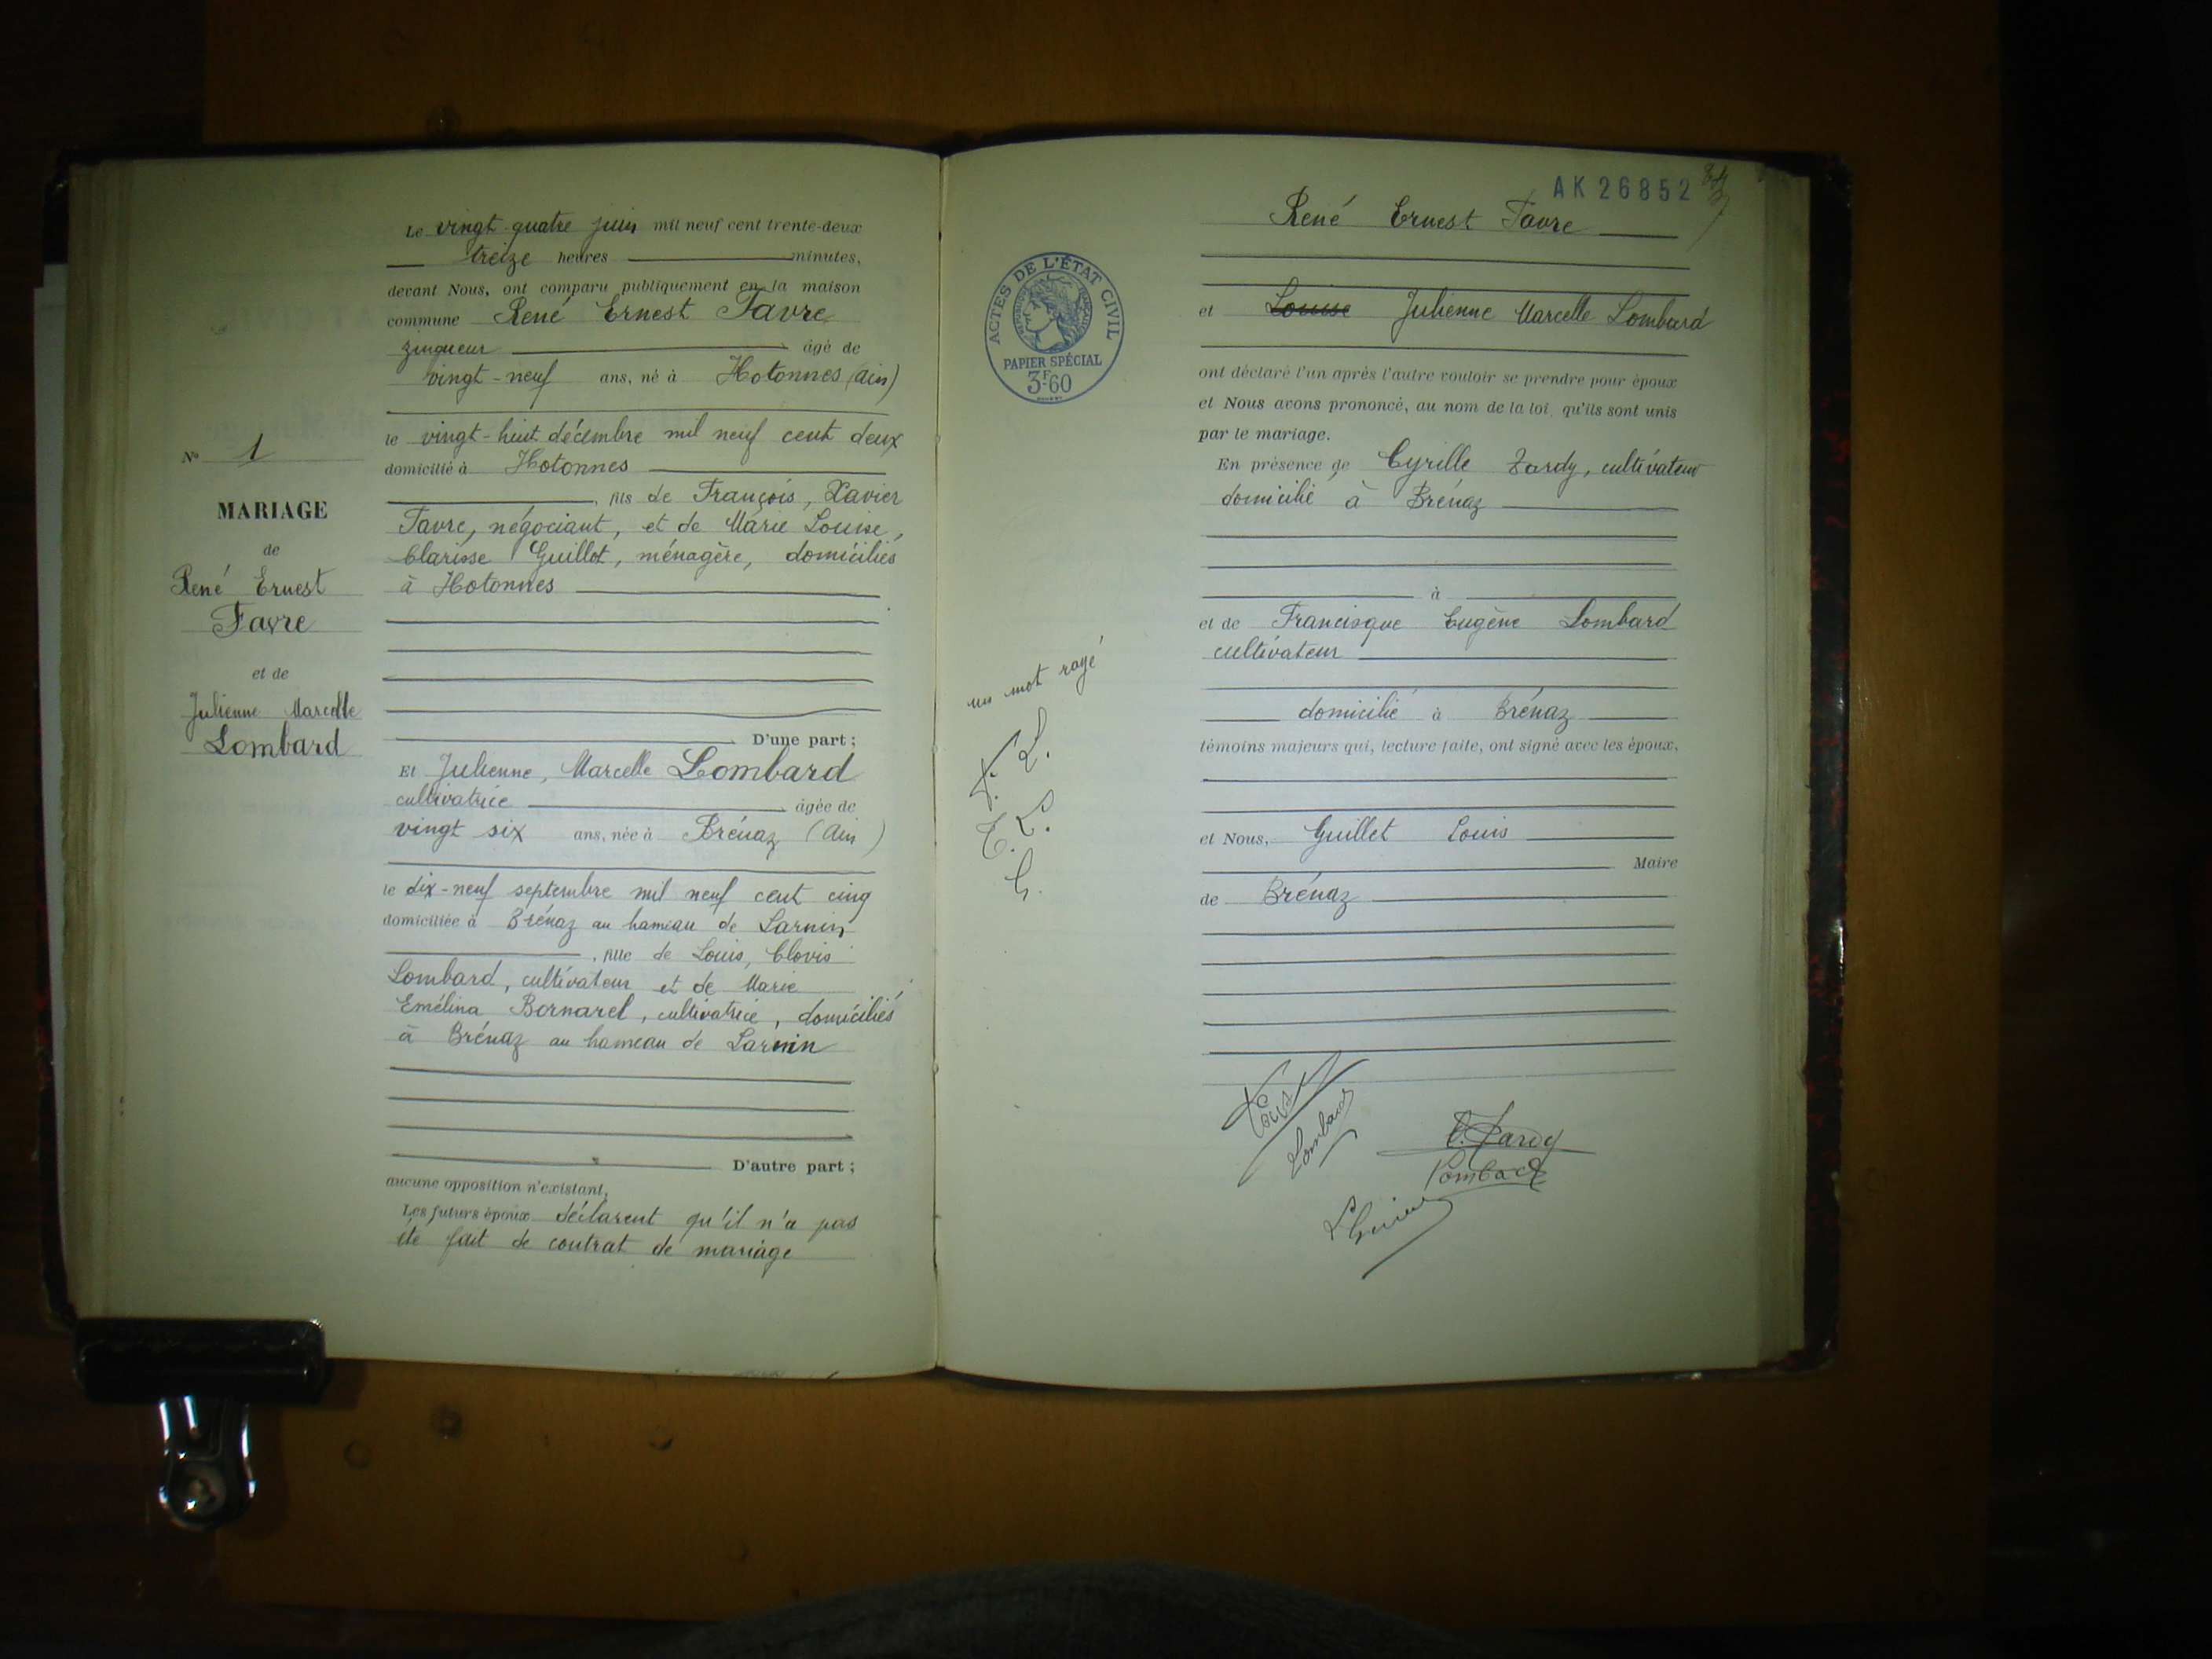 Le vingt-quatre juin mil neuf cent trente-deux
treize heures minutes,
devant Nous, ont comparu publiquement en la maison
commune René Ernest Favre
zingueur âgé de
vingt-neuf ans, né à Hotonnes (Ain)
le vingt-huit décembre mil neuf cent deux
domicilié à Hotonnes
, fils de François, Xavier
Favre, négociant, et de Marie Louise,
Clarisse Guillot, ménagère, domiciliés
à Hotonnes
D'une part ;
Et Julienne, Marcelle Lombard
cultivatrice âgée de
vingt six ans, née à Brénaz (Ain)
le dix-neuf septembre mil neuf cent cinq
domiciliée à Brénaz au hameau de Larnin
, fille de Louis, Clovis
Lombard, cultivateur et de Marie
Emélina Bornarel, cultivatrice, domiciliés
à Brénaz au hameau de Larnin
D'autre part ;
aucune opposition n'existant,
Les futurs époux déclarent qu'il n'a pas
été fait de contrat de mariage
N° 1
MARIAGE
de
René Ernest
Favre
et de
Julienne Marcelle
Lombard
AK 26852
René Ernest Favre
et Louise Julienne Marcelle Lombard
ont déclaré l'un après l'autre vouloir se prendre pour époux
et Nous avons prononcé, au nom de la loi, qu'ils sont unis
par le mariage.
En présence de Cyrille Tardy, cultivateur
domicilié à Brénaz
à
et de Francisque Eugène Lombard
cultivateur
domicilié à Brénaz
témoins majeurs qui, lecture faite, ont signé avec les époux,
et Nous, Guillet Louis
Maire
de Brénaz
ACTES DE L'ÉTAT CIVIL
RÉPUBLIQUE FRANÇAISE
PAPIER SPÉCIAL
3F.60
un mot rayé
L.
L.
G.
Lombard
C. Tardy
Lombard